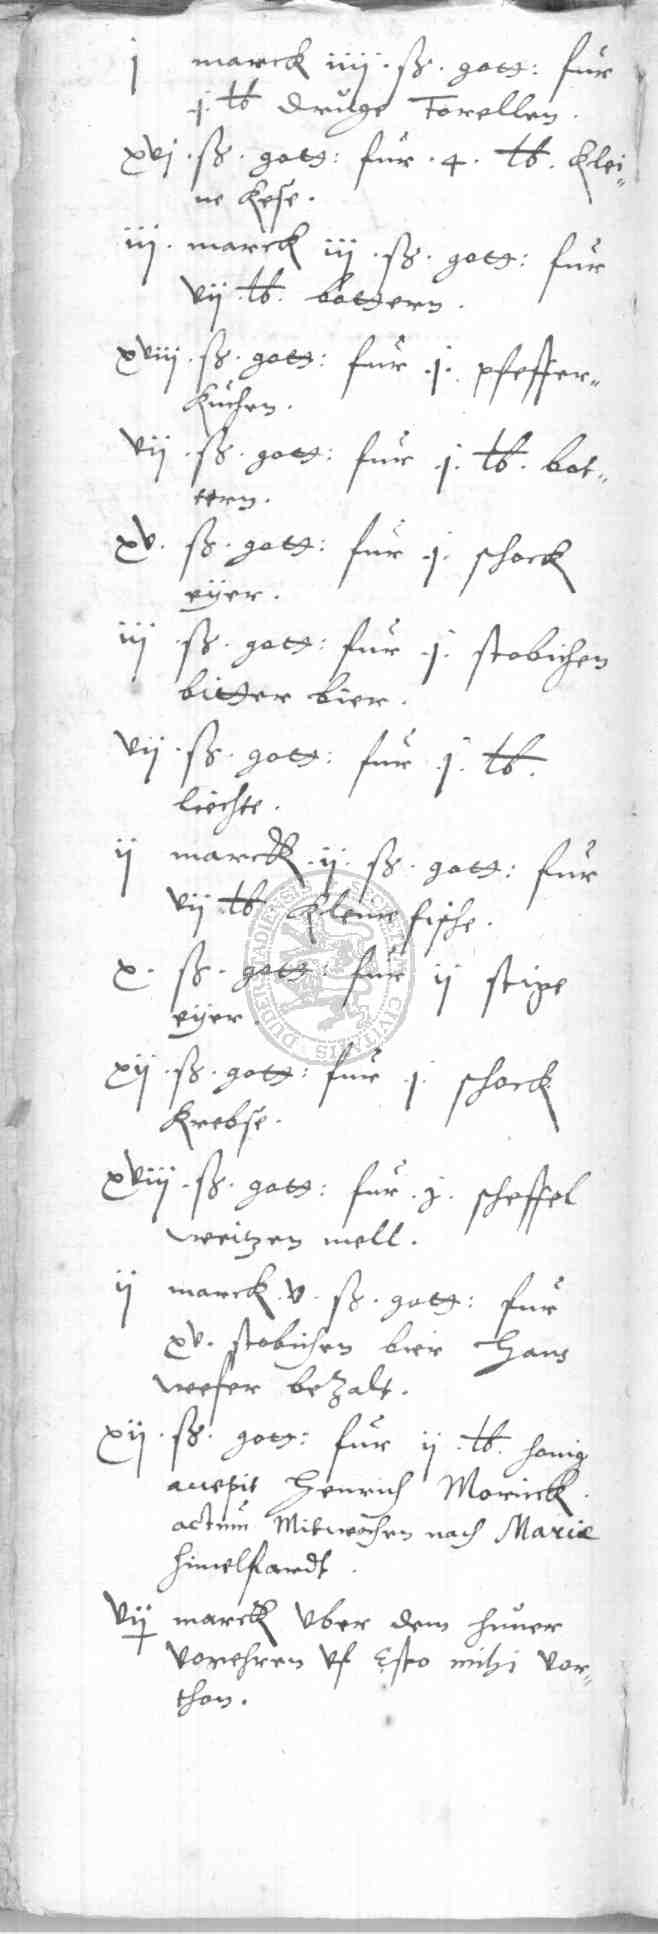 j marck iiij . ß . gott: fur
.j. lb druge Forellen .
xvj . ß . gott: fur . 4 . lb . klei„
ne kese .
iij . marck iij . ß . gott: fur
vij . lb . bottern .
xviij . ß . gott: fur .j. pfeffer„
kuchen .
vij . ß . gott: fur .j. lb . bot„
tern .
xv . ß . gott: fur .j. schock
eijer .
iij . ß . gott: fur .j. stobichen
bitter bier .
vij . ß . gott: fur .j. lb .
liechte .
ij marck .ij. ß . gott: fur
vij . lb kleine fische .
x . ß . gott: fur ij stige
eijer .
xij . ß . gott: fur .j. schock
krebse .
xviij . ß . gott: fur .j. scheffel
weitzen mell .
ij marck . v . ß . gott: fur
xv . stobichen bier Hans
weser bezalt .
xij . ß . gott: fur ij . lb . honig
accepit Henrich Morinck .
actum Mitwochen nach Mariæ
himelfardt .
vij marck vber dem huner
vorehren vf Esto mihi vor„
than .
SECRETUM CIVITATIS DUDERSTADIENSIS